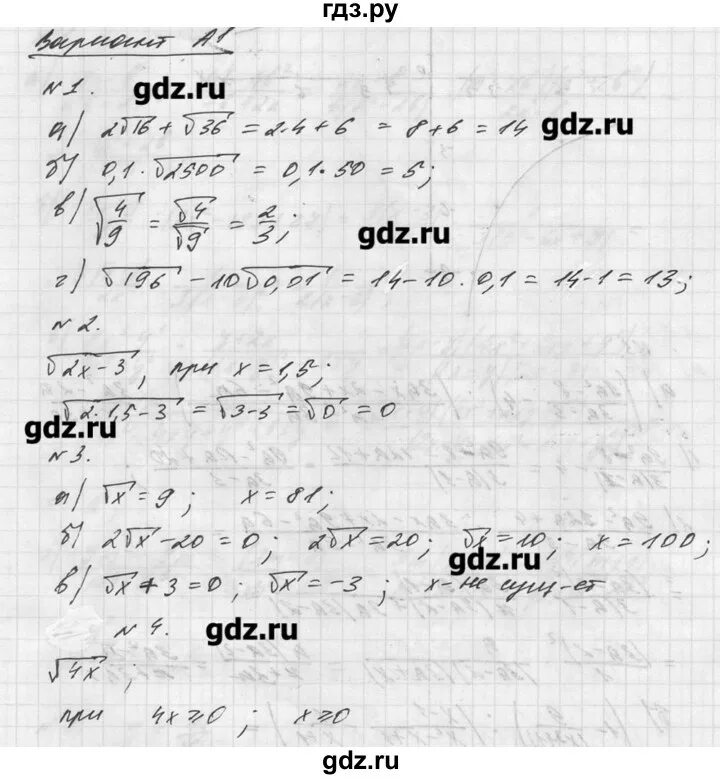 гдз.ру
Вариант А1
№1. gdz.ru
а) 2√16 + √36 = 2·4+6 = 8+6 = 14 gdz.ru
б) 0,1·√2500 = 0,1·50 = 5;
в) √4/9 = √4/√9 = 2/3; gdz.ru
г) √196 - 10√0,01 = 14-10·0,1 = 14-1 = 13;
№2.
√2x-3, при x=1,5;
√2·1,5-3 = √3-3 = √0 = 0
gdz.ru
№3.
а) √x = 9; x = 81;
б) 2√x - 20 = 0; 2√x = 20; √x = 10; x = 100;
gdz.ru
в) √x + 3 = 0; √x = -3; x - не сущ-ет
№4. gdz.ru
√4x;
при 4x≥0; x≥0
gdz.ru